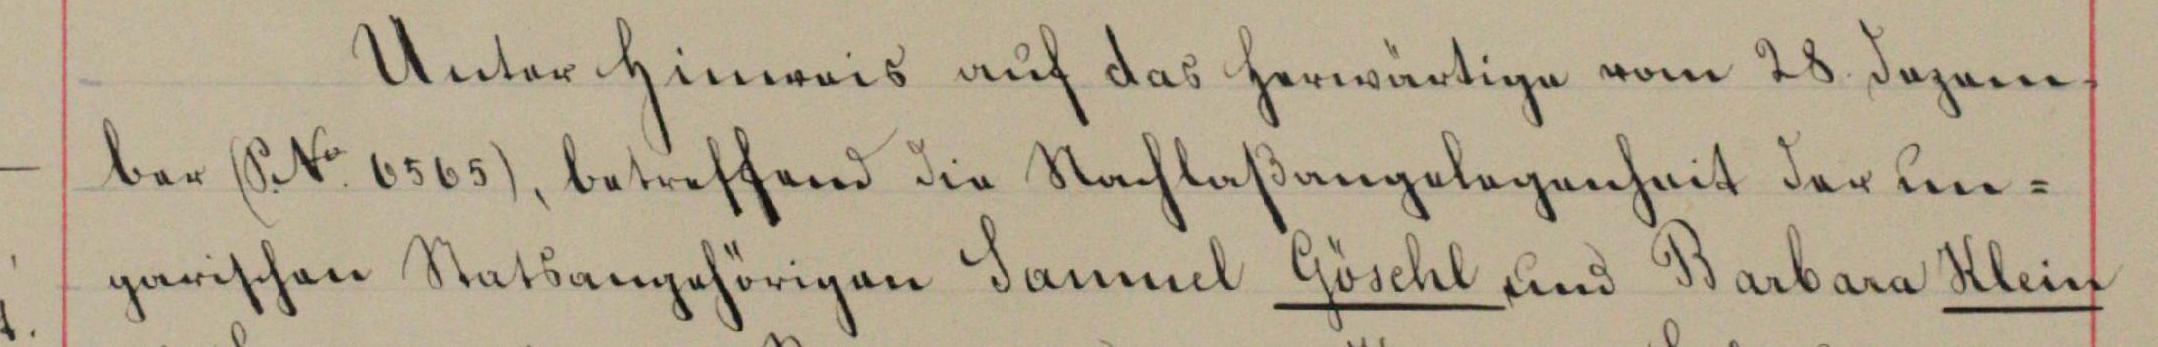 Unter Hinweis auf das herwärtige vom 28. Dezem-
ber (P. No. 6565), betreffend die Nachlaßangelegenheit der un=
garischen Statsangehörigen Samuel Göschl und Barbara Klein